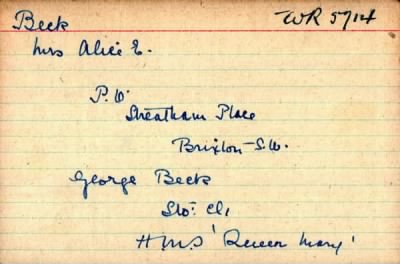 Beck
WR 5/14
Mrs Alice E.
P.O.
Streatham Place
Brixton S.W.
George Beck
Sto: Cl,
H.M.S 'Queen Mary'